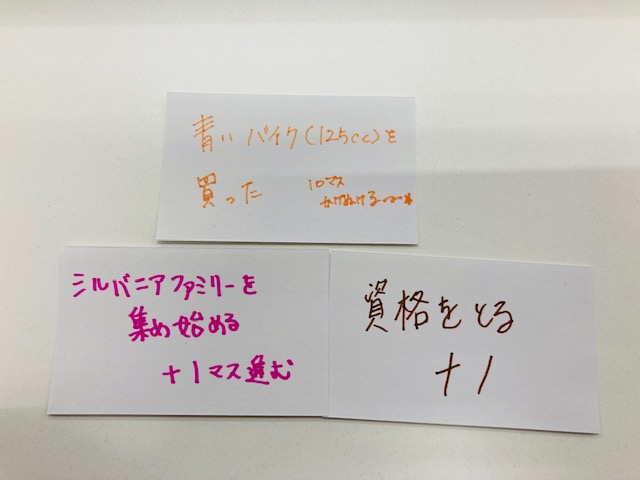 青い バイク(125cc)を
買った 10マス
かけぬける〜★
シルバニアファミリーを
集め始める
+1マス進む
資格をとる
+1